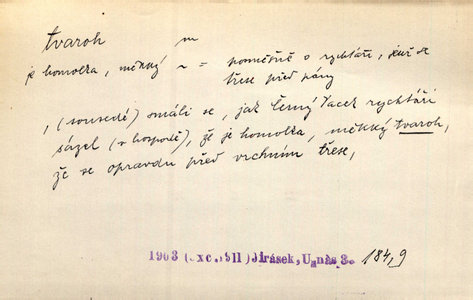 tvaroh m
je homolka, měkký ~ = poměšně o rychtáři, jenž se
třese před pány
, (sousedé) smáli se, jak Černý Vacek rychtáři
sázel (v hospodě), že je homolka, měkký tvaroh,
že se opravdu před vrchním třese,
1903 (exc. 1911) Jirásek, U nás 3. 184,9